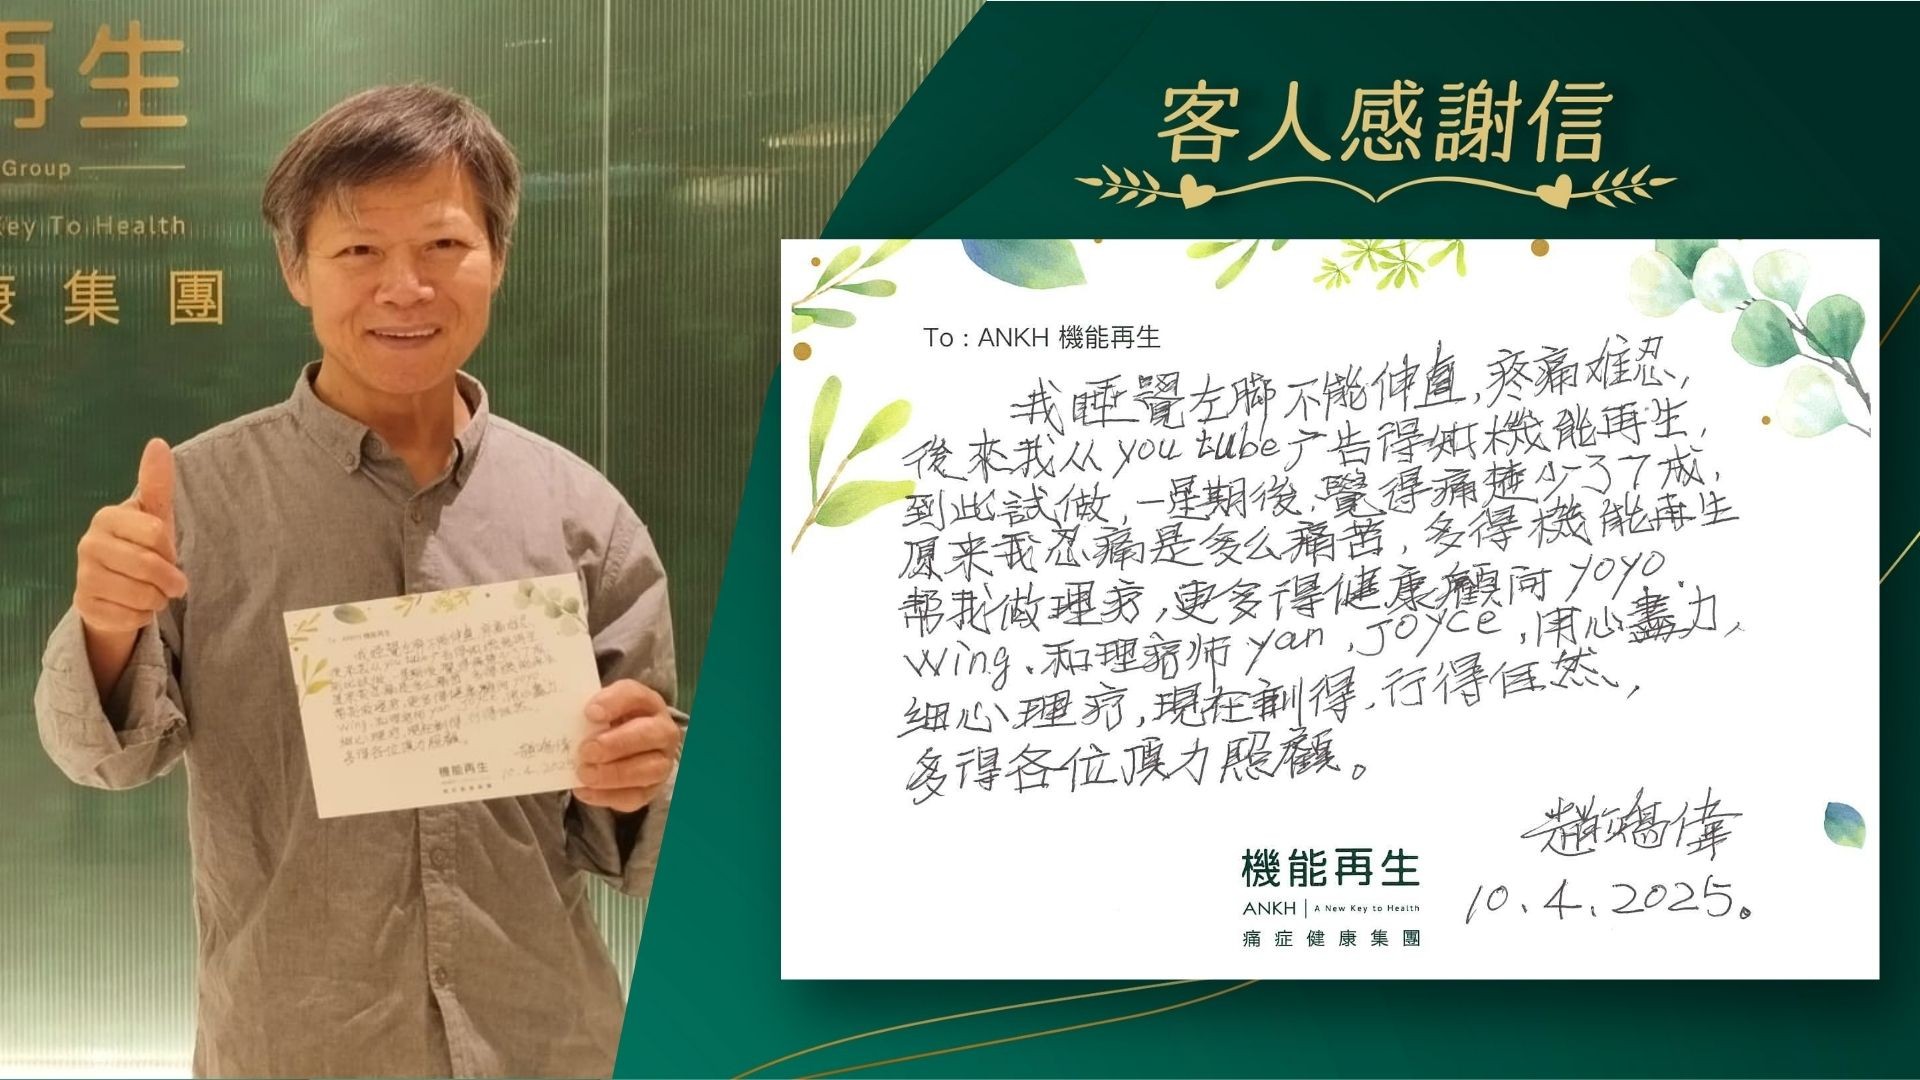 再生
Group
Key To Health
康集團
客人感謝信
To : ANKH 機能再生
我睡覺左脚不能伸直,疼痛难忍,
後來我从you tube广告得知機能再生,
到此試做,一星期後,覺得痛楚少了7成,
原来我忍痛是多么痛苦,多得機能再生
帮我做理疗,更多得健康顧问yoyo.
wing、和理疗师yan、Joyce,用心盡力,
细心理疗,現在訓得,行得
多得各位頂力照顧。
趙鴻偉
10.4.2025。
機能再生
ANKH | A New Key to Health
痛症健康集團